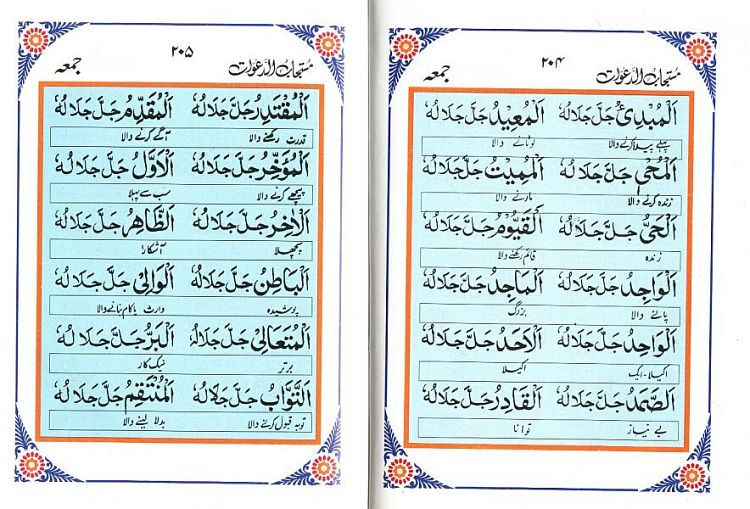 ۲۰۴
مستجاب الدعوات
جمعہ
اَلْمُبْدِئُ جَلَّ جَلَالُهٗ اَلْمُعِيْدُ جَلَّ جَلَالُهٗ
پہلے پیدا کرنے والا لوٹانے والا
اَلْمُحْيِ جَلَّ جَلَالُهٗ اَلْمُمِيْتُ جَلَّ جَلَالُهٗ
زندہ کرنے والا مارنے والا
اَلْحَيُّ جَلَّ جَلَالُهٗ اَلْقَيُّوْمُ جَلَّ جَلَالُهٗ
زندہ قائم رکھنے والا
اَلْوَاجِدُ جَلَّ جَلَالُهٗ اَلْمَاجِدُ جَلَّ جَلَالُهٗ
پانے والا بزرگ
اَلْوَاحِدُ جَلَّ جَلَالُهٗ اَلْاَحَدُ جَلَّ جَلَالُهٗ
اکیلا۔ایک اکیلا
اَلصَّمَدُ جَلَّ جَلَالُهٗ اَلْقَادِرُ جَلَّ جَلَالُهٗ
بے نیاز توانا
۲۰۵
مستجاب الدعوات
جمعہ
اَلْمُقْتَدِرُ جَلَّ جَلَالُهٗ اَلْمُقَدِّمُ جَلَّ جَلَالُهٗ
قدرت رکھنے والا آگے کرنے والا
اَلْمُؤَخِّرُ جَلَّ جَلَالُهٗ اَلْاَوَّلُ جَلَّ جَلَالُهٗ
پیچھے کرنے والا سب سے پہلا
اَلْاٰخِرُ جَلَّ جَلَالُهٗ اَلظَّاهِرُ جَلَّ جَلَالُهٗ
پچھلا آشکارا
اَلْبَاطِنُ جَلَّ جَلَالُهٗ اَلْوَالِيْ جَلَّ جَلَالُهٗ
پوشیدہ وارث یا کام بنانے والا
اَلْمُتَعَالِيْ جَلَّ جَلَالُهٗ اَلْبَرُّ جَلَّ جَلَالُهٗ
برتر نیک کار
اَلتَّوَّابُ جَلَّ جَلَالُهٗ اَلْمُنْتَقِمُ جَلَّ جَلَالُهٗ
توبہ قبول کرنے والا بدلا لینے والا